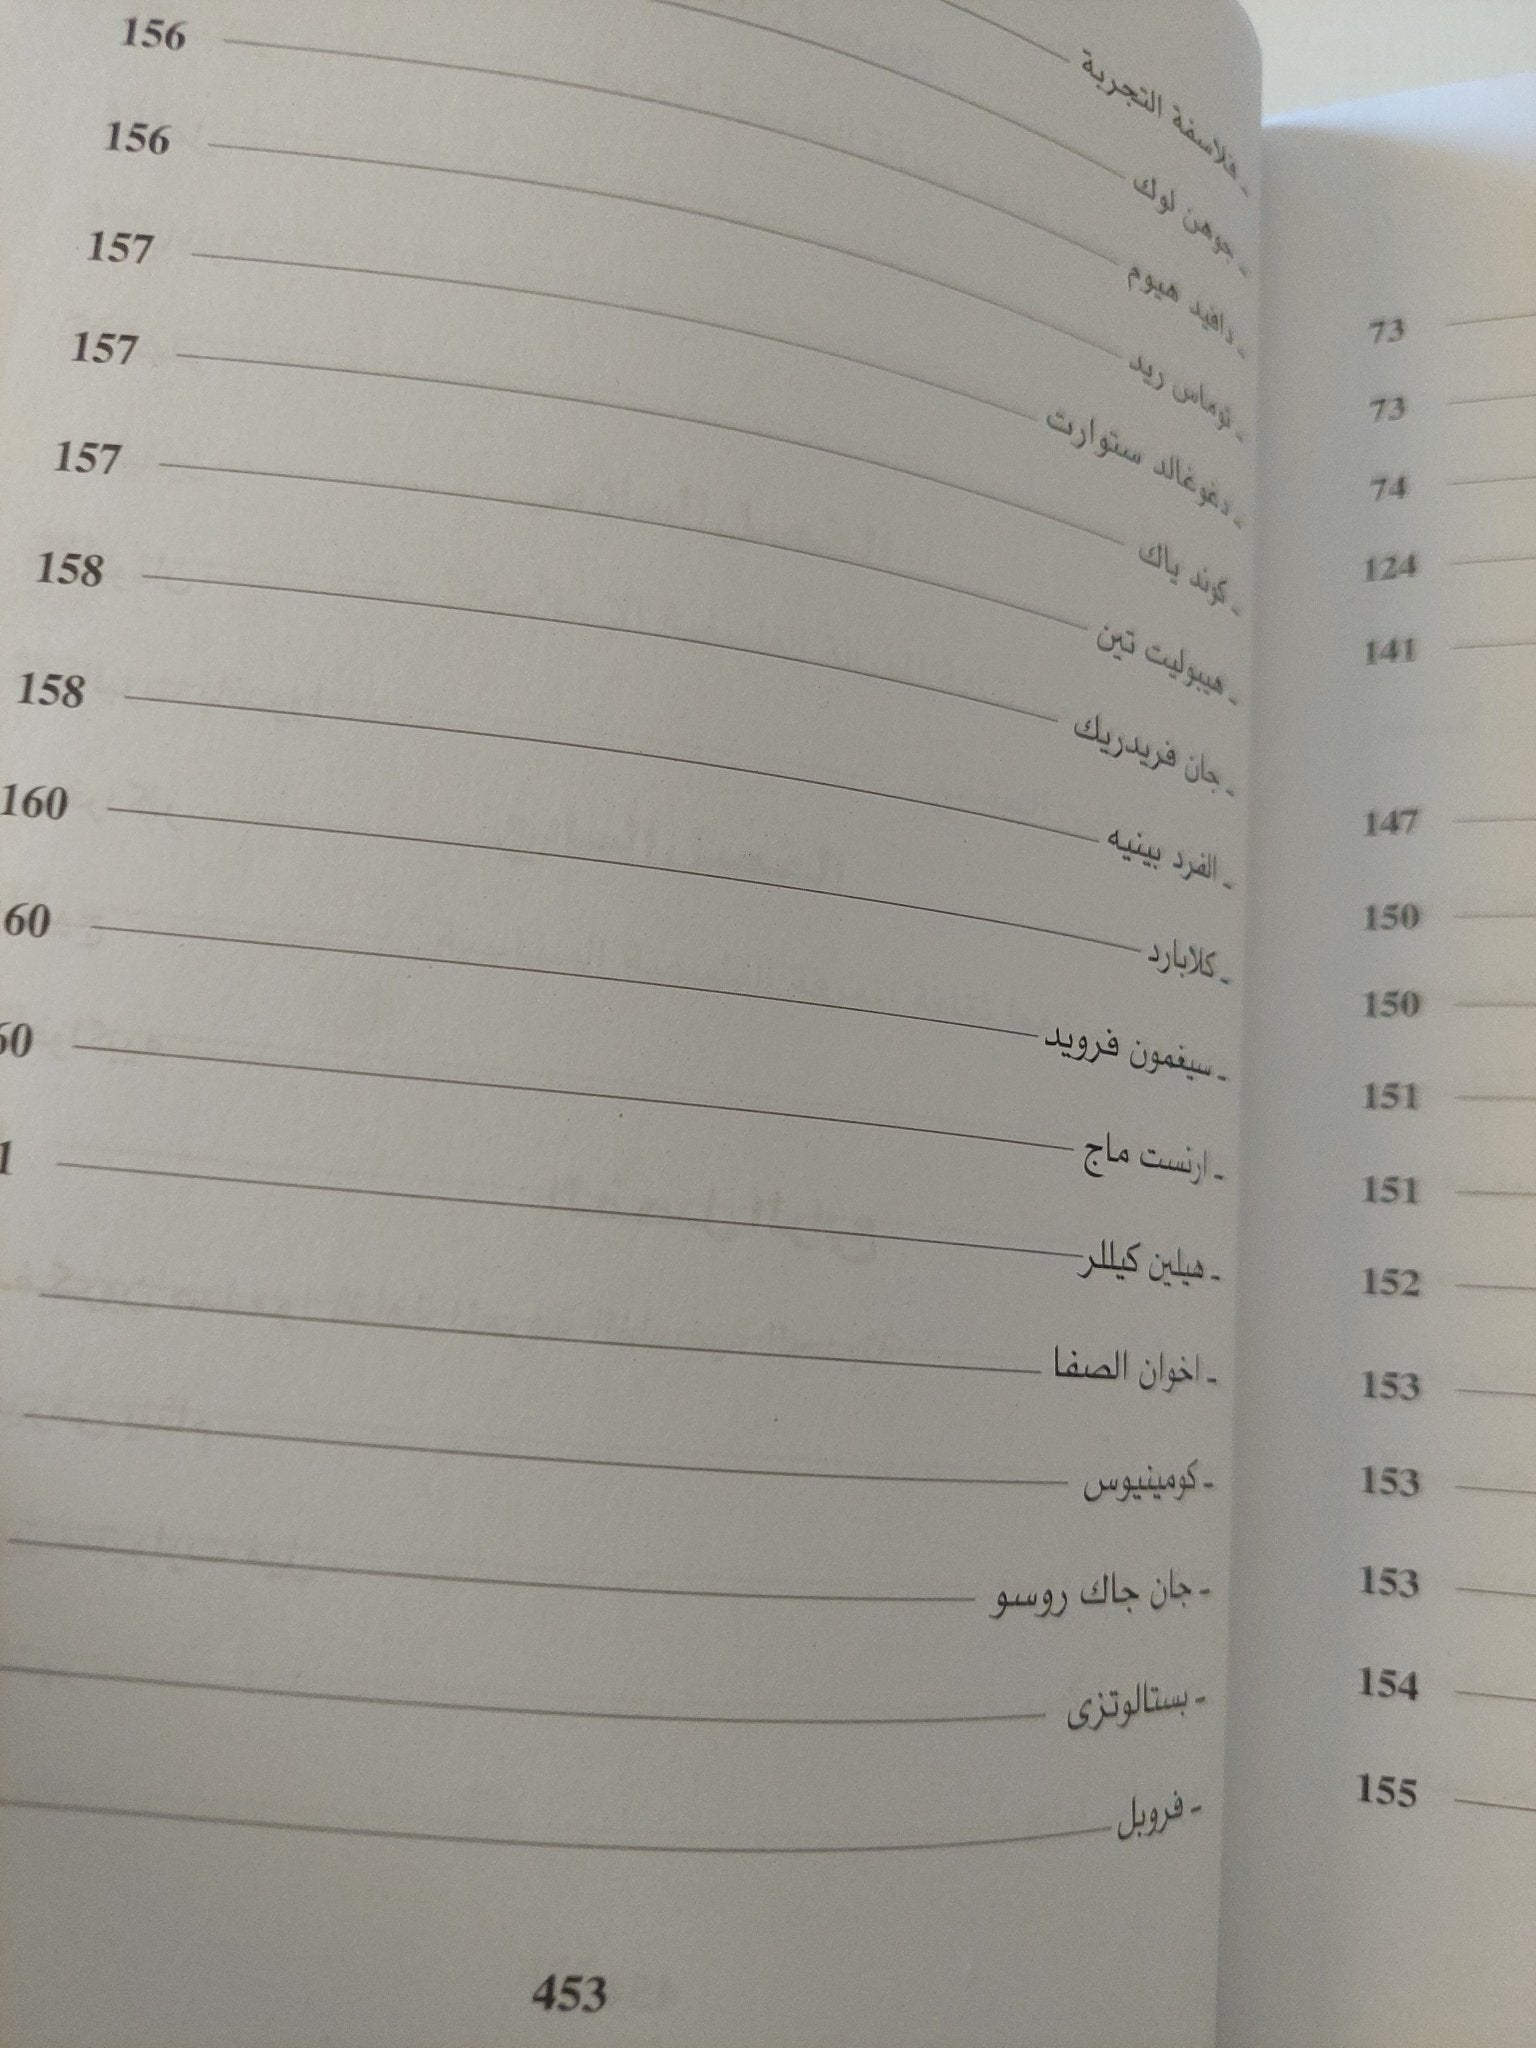 - فلاسفة التجربة
- جوهن لوك
- دافيد هيوم 156
- توماس ريد 156
- دغوغالد ستوارت 157
- كوند ياك 157
- هيبوليت تين 157
- جان فريدريك 158
- الفرد بينيه 158
- كلابارد 160
- سيغمون فرويد 60
- ارنست ماج 60
- هيلين كيللر 1
- اخوان الصفا
- كومينيوس
- جان جاك روسو
- بستالوتزى
- فروبل
453
73
73
74
124
141
147
150
150
151
151
152
153
153
153
154
155